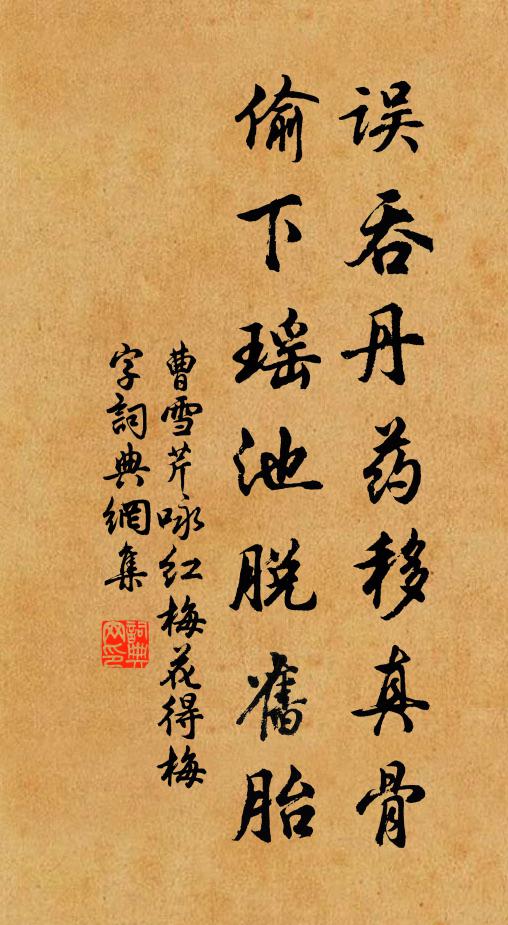 误吞丹药移真骨
偷下瑶池脱舊胎
曹雪芹咏红梅花得梅
字詞典網集
詞典
网印